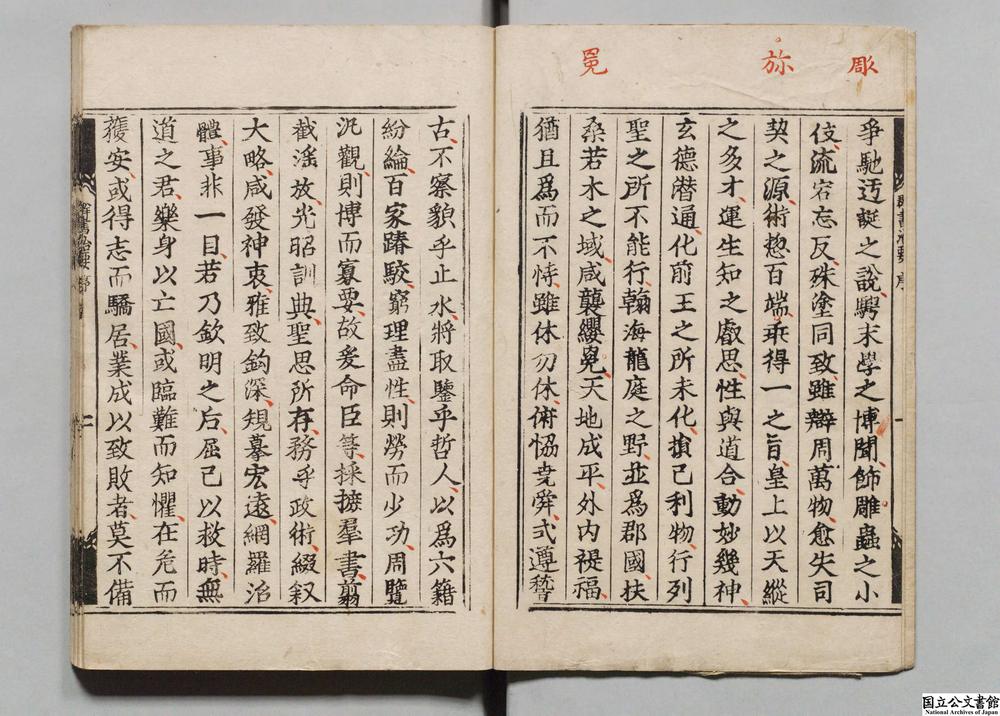 彫
旀
冕
爭馳迃誕之說騁末學之博聞飾雕蟲之小
伎流宕忘反殊塗同致雖辯周萬物愈失司
契之源術惣百端乖得一之旨皇上以天縱
之多才運生知之叡思性與道合動妙幾神
玄德潛通化前王之所未化損己利物行列
聖之所不能行翰海龍庭之野並爲郡國扶
桑若木之域咸襲纓冕天地成平外內禔福
猶且爲而不恃雖休勿休俯恊堯舜式遵稽
群書治要 序
一
古不察貌乎止水將取鑒乎哲人以爲六籍
紛綸百家踳駮窮理盡性則勞而少功周覽
汎觀則博而寡要故爰命臣等採摭羣書翦
截淫放光昭訓典聖思所存務乎政術綴叙
大略咸發神衷雅致鈎深規摹宏遠網羅治
體事非一目若乃欽明之后屈己以救時無
道之君樂身以亡國或臨難而知懼在危而
獲安或得志而驕居業成以致敗者莫不備
群書治要 序
二
国立公文書館
National Archives of Japan